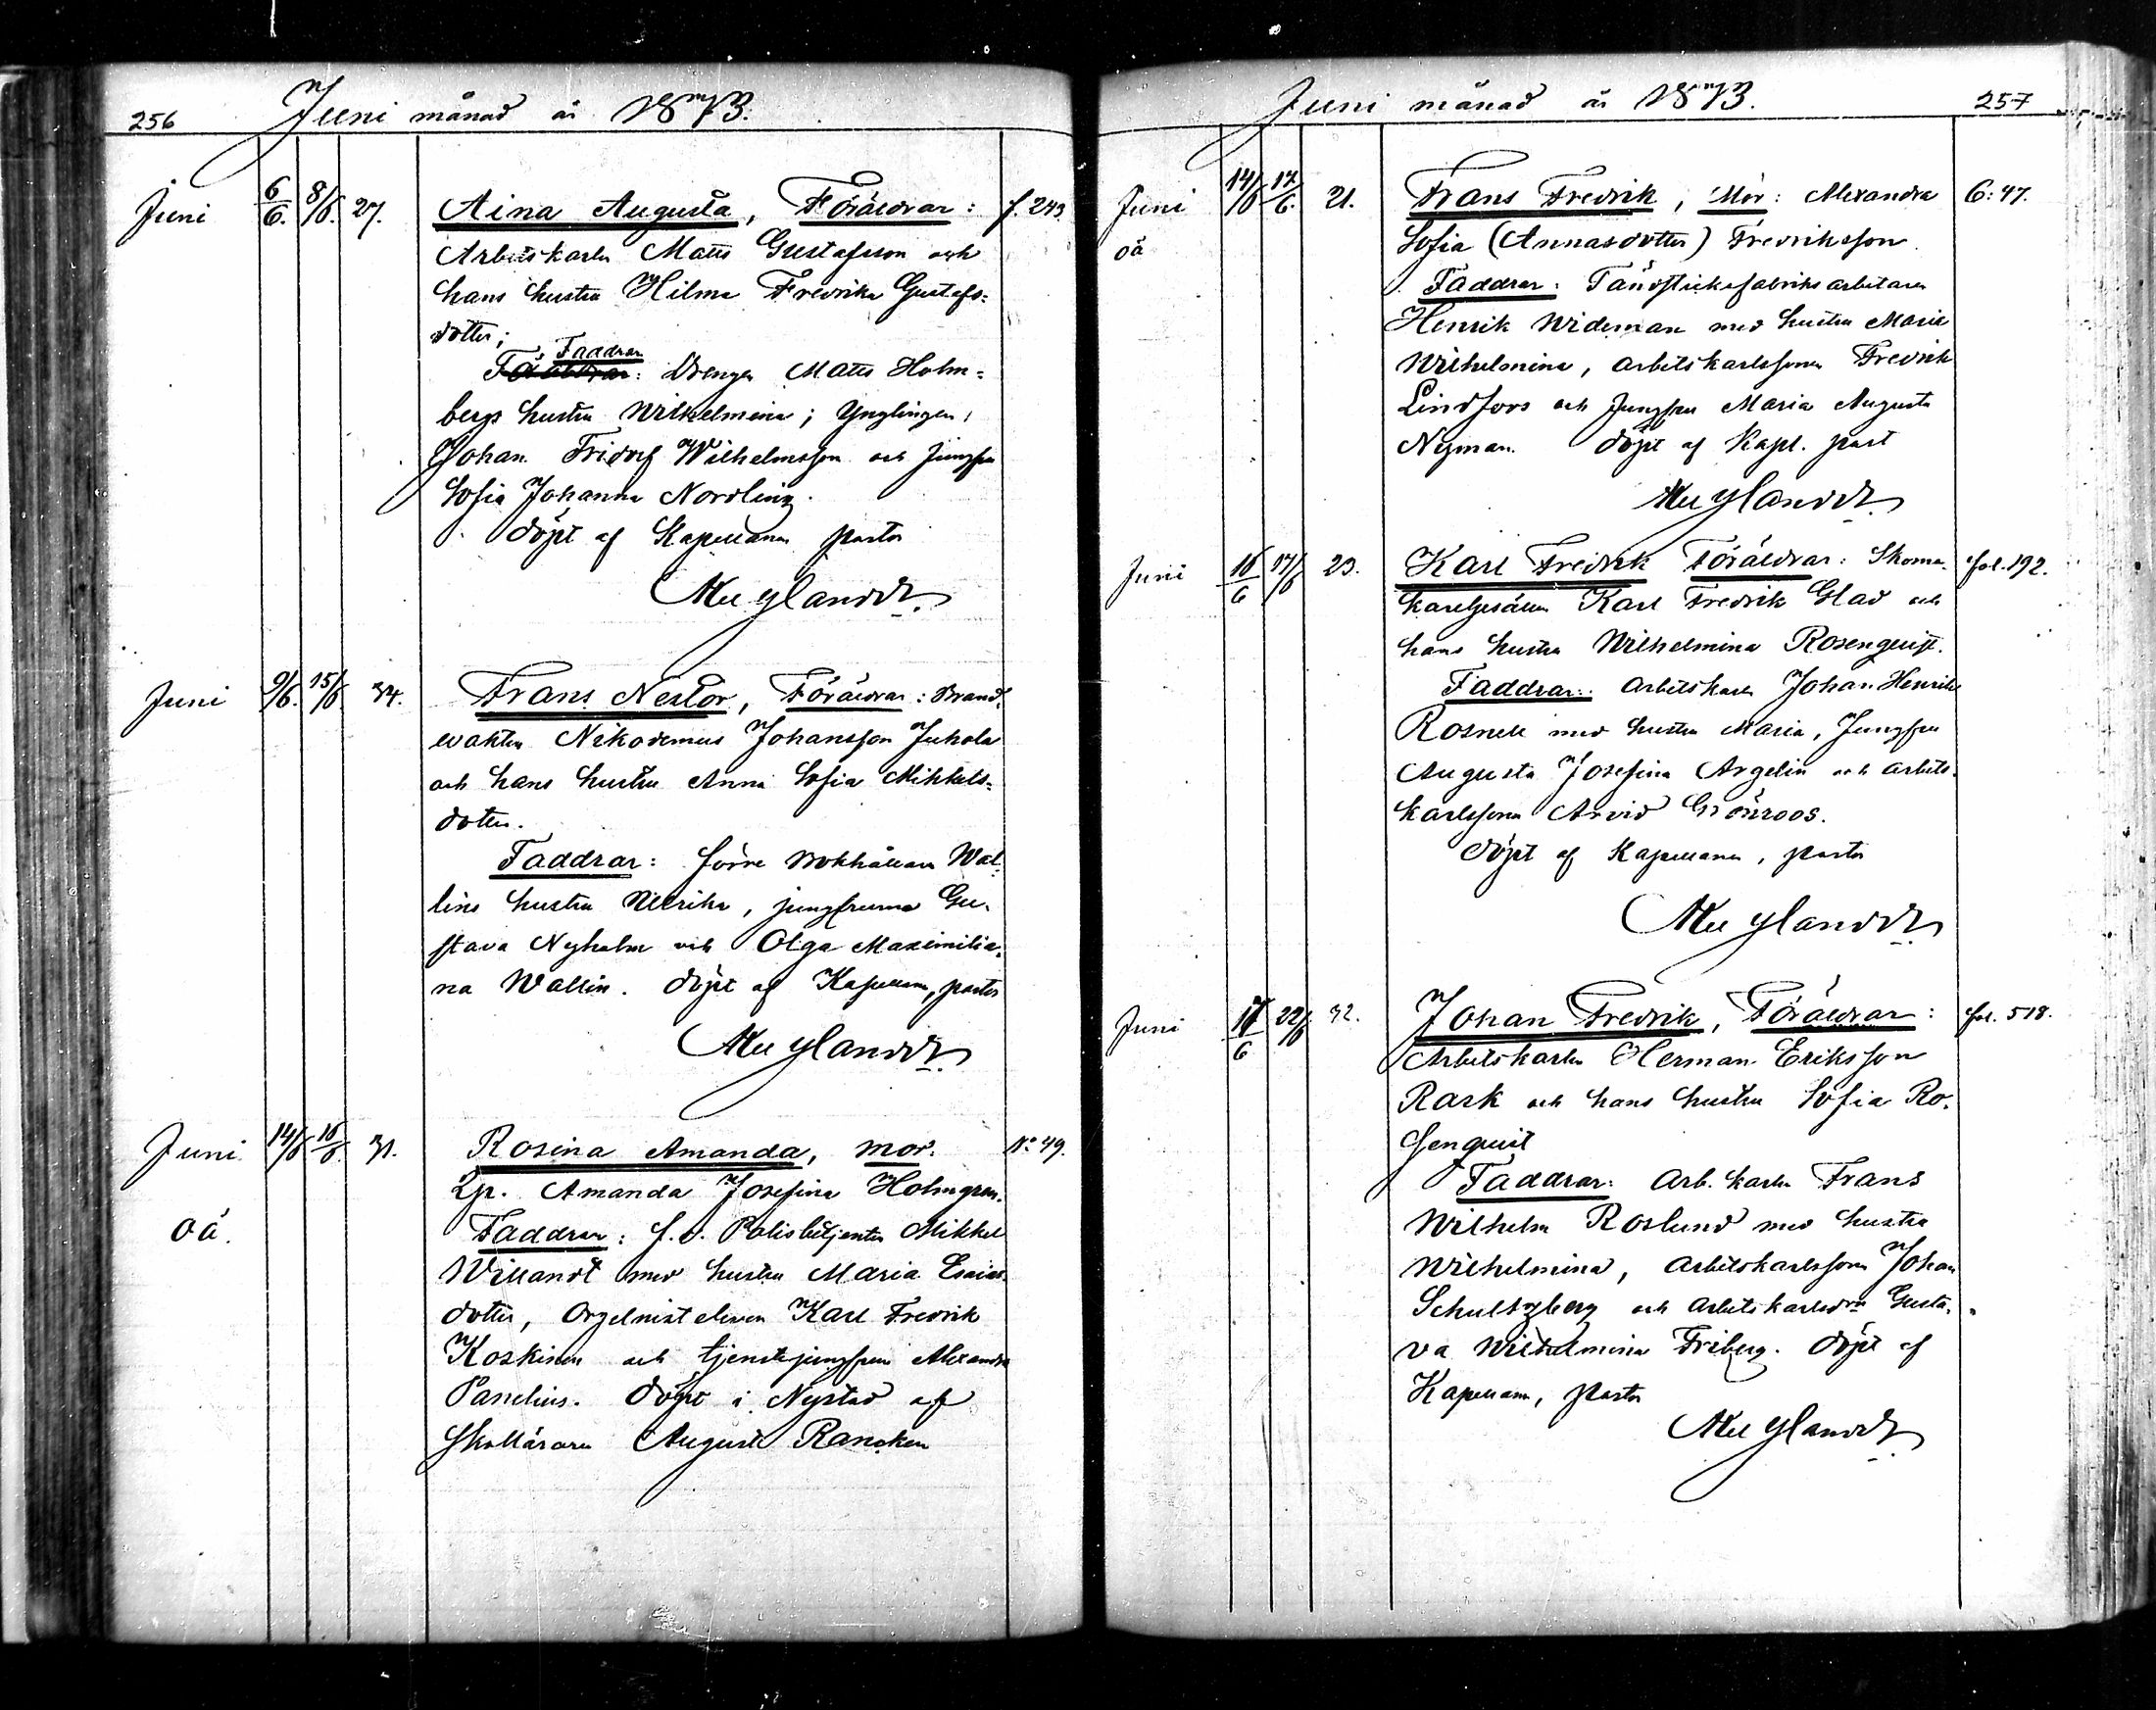 256 Juni månad år 1873.
Juni 6/6. 8/6. 27. Aina Augusta, Föräldrar: f. 243
Arbetskarlen Matts Gustafsson och
hans hustru Hilma Fredrika Gustafs=
dotter;
Faddrar
Föräldrar: Drengen Matts Holm=
bergs hustru Wilhelmina; Ynglingen
Johan Fridolf Wilhelmsson och jungfru
Sofia Johanna Nordling.
döpt af Kapellanen pastor
Juni 9/6. 15/6 34. Frans Nestor, Föräldrar: Brand=
vakten Nikodemus Johansson Juhola
och hans hustru Anna Sofia Mikkels=
dotter.
Faddrar: förre Bokhållaren Wal=
lins hustru Ulrika, jungfrurna Gu=
stava Nyholm och Olga Maximilia=
na Wallin. döpt af Kapellan, pastor
Juni 14/6 16/6. 31. Rosina Amanda, mor: No 49.
Qp. Amanda Josefina Holmgren.
oä. Faddrar: f. d. Polisbetjenten Mikkel
Willandt med hustru Maria Esaias
dotter, Orgelnisteleven Karl Fredrik
Koskinen och tjenstejungfrun Alexandra
Panelius. döpt i Nystad af
Skolläraren August Rancken
Juni månad år 1873. 257
Juni 14/6 17/6. 21. Frans Fredrik, Mor: Alexandra 6:47.
oä Sofia (Annasdotter) Fredriksson
Faddrar: Tändsticksfabriks arbetaren
Henrik Wideman med hustru Maria
Wilhelmina, arbetskarlssonen Fredrik
Lindfors och Jungfru Maria Augusta
Nyman. döpt af Kapl. past
Juni 16/6 17/6 23. Karl Fredrik Föräldrar: Skoma= fol. 192.
karegesällen Karl Fredrik Glad och
hans hustru Wilhelmina Rosenquist.
Faddrar: Arbetskarlen Johan Henrik
Rosnell med hustru Maria, Jungfru
Augusta Josefina Argelin och arbets=
karlssonen Arvid Grönroos.
döpt af Kapellanen, pastor
Juni 17/6 22/6 32. Johan Fredrik, Föräldrar: fol. 518.
Arbetskarlen Herman Eriksson
Rask och hans hustru Sofia Ro=
senquist
Faddrar: Arb. karlen Frans
Wilhelm Roslund med hustru
Wilhelmina, Arbetskarlssonen Johan
Schultzberg och Arbetskarlsdrn Gusta=
va Wilhelmina Friberg. döpt af
Kapellanen, pastor